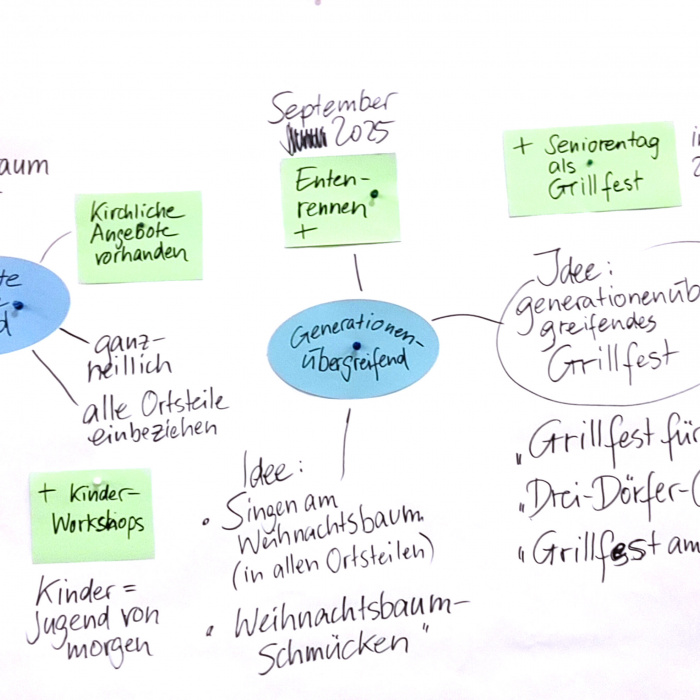 aum
Kirchliche
Angebote
vorhanden
te
d
ganz-
heillich
alle Ortsteile
einbeziehen
+ Kinder-
Workshops
Kinder =
Jugend von
morgen
September
2025
Enten-
rennen
+
Generationen-
übergreifend
Idee:
• Singen am
Weihnachtsbaum
(in allen Ortsteilen)
• Weihnachtsbaum-
Schmücken"
+ Seniorentag
als
Grillfest
Idee:
generationenüb
greifendes
Grillfest
"Grillfest für
"Drei-Dörfer-(
"Grillfest am